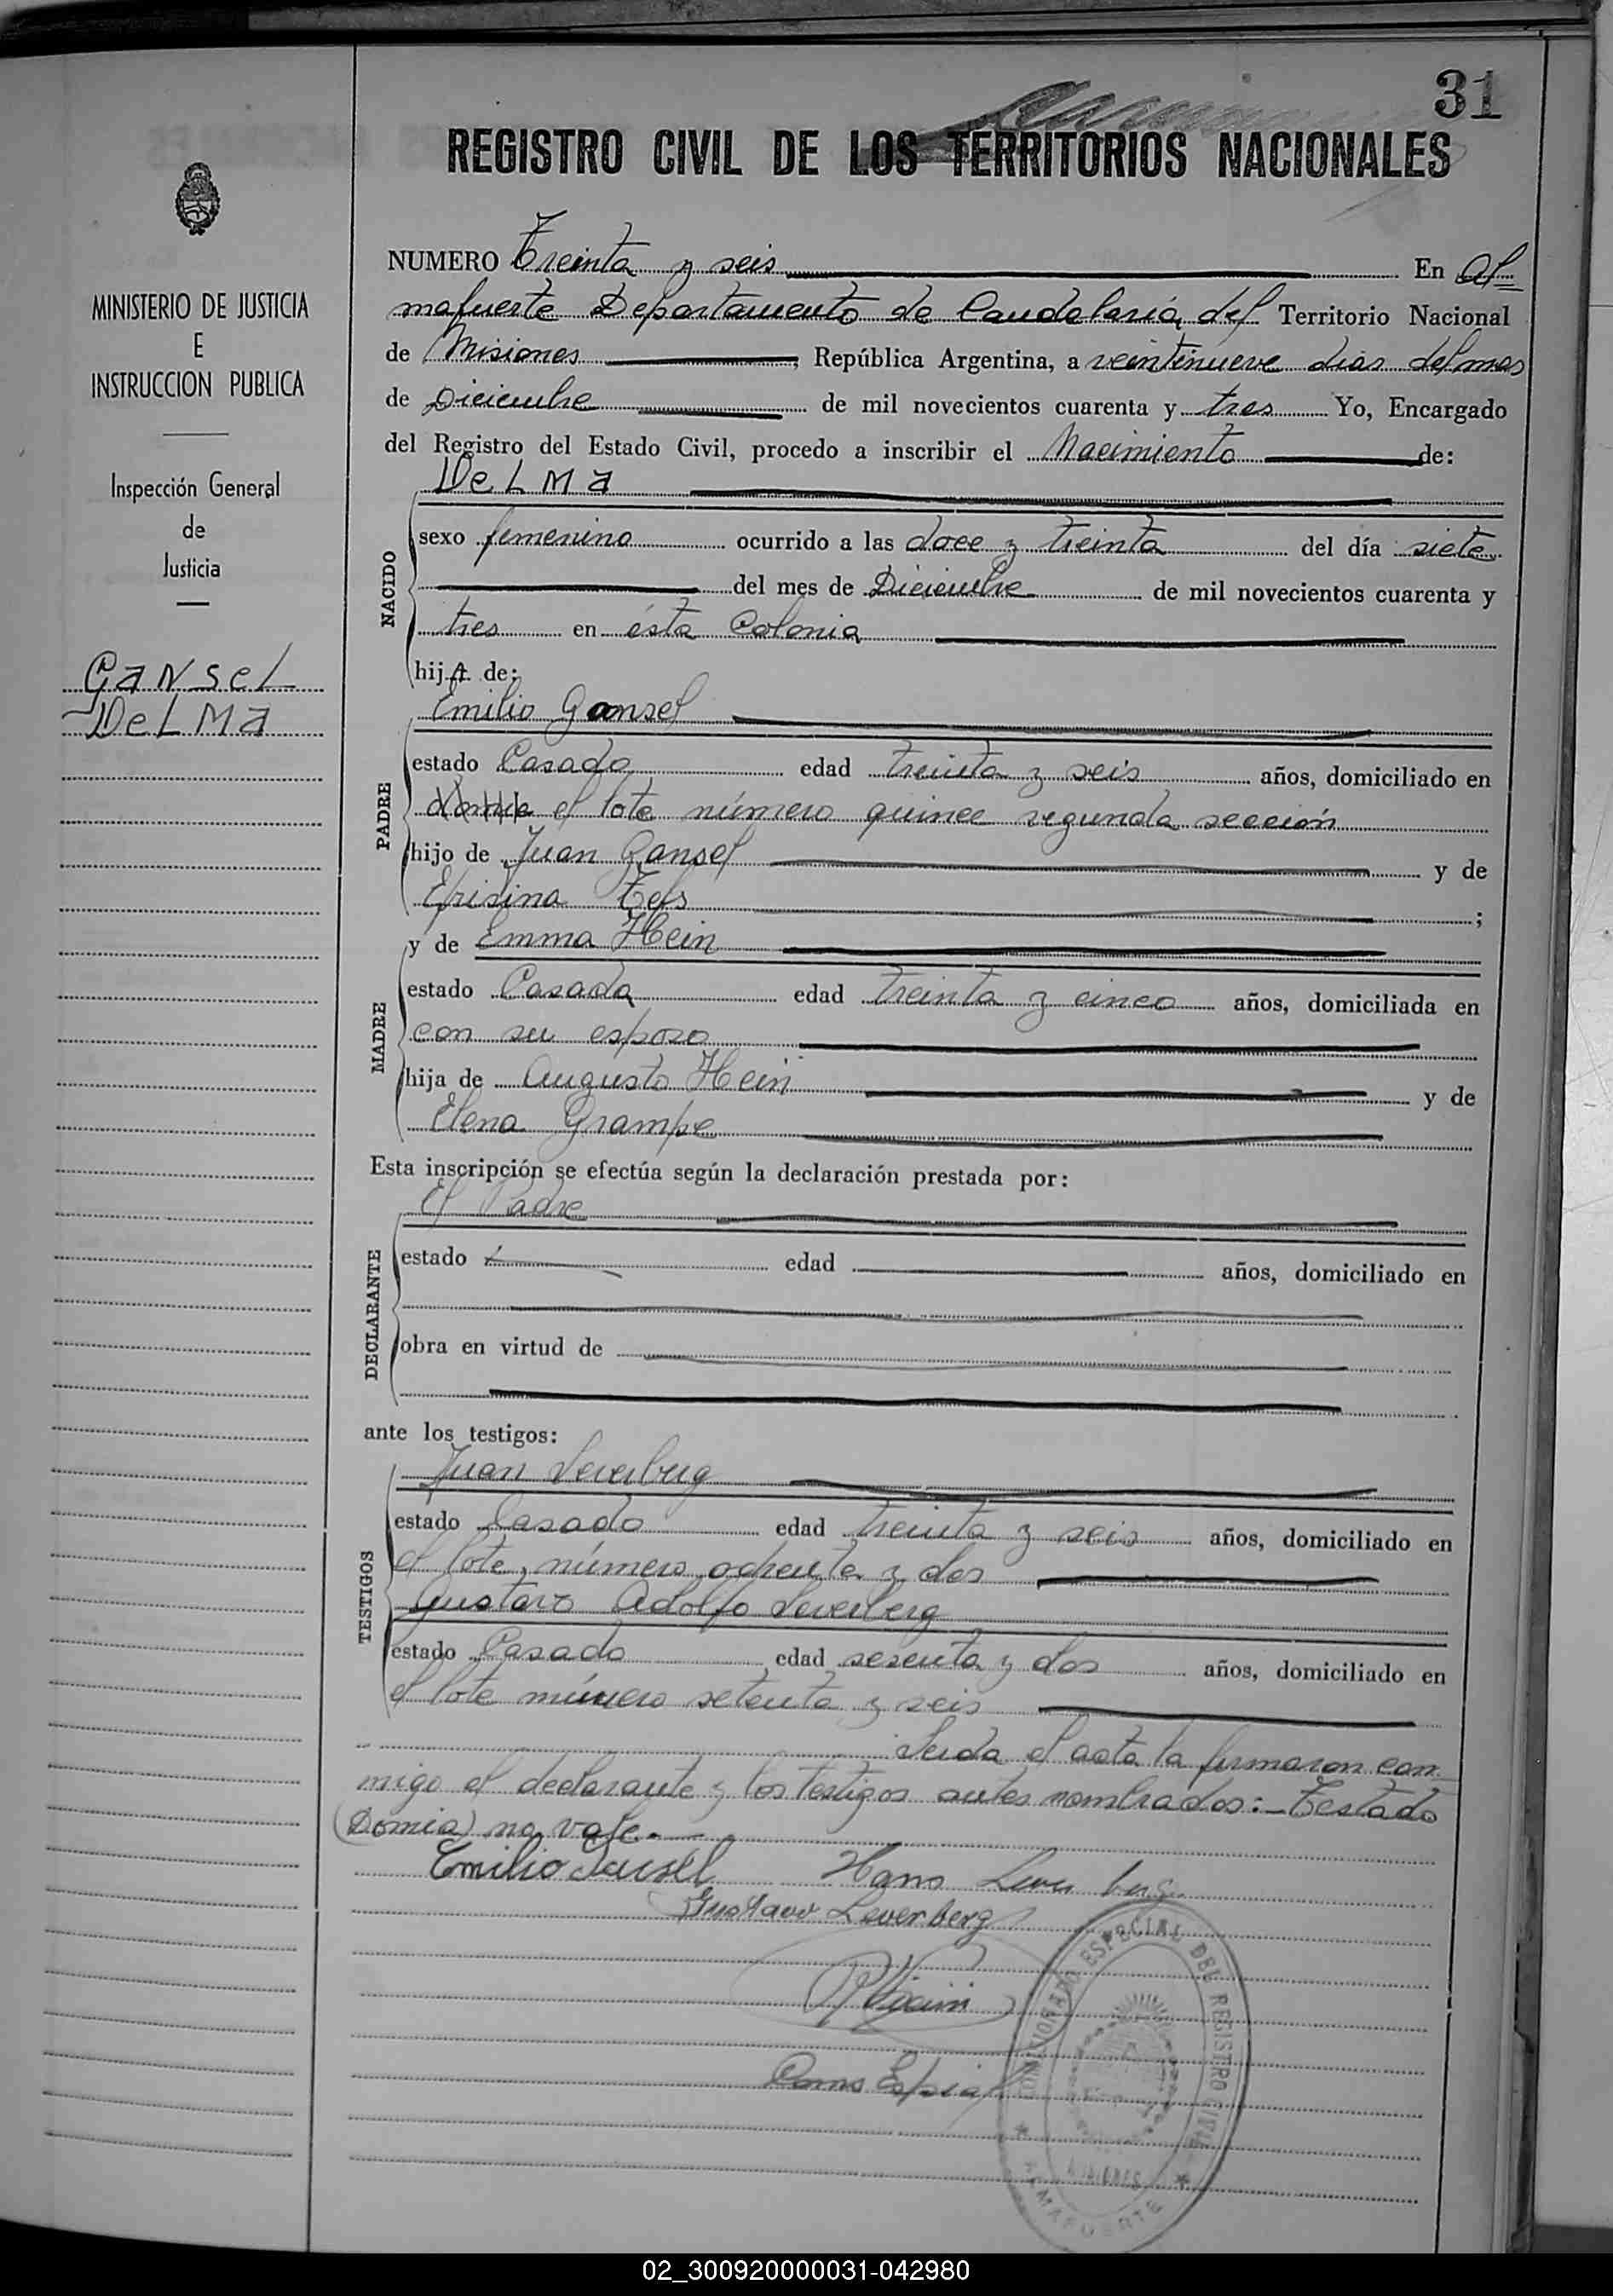 31
REGISTRO CIVIL DE LOS TERRITORIOS NACIONALES
MINISTERIO DE JUSTICIA
E
INSTRUCCION PUBLICA
Inspección General
de
Justicia
Gansel
Delma
NUMERO Treinta y seis En Al=
mafuerte Departamento de Candelaria del Territorio Nacional
de Misiones, República Argentina, a veintinueve dias del mes
de Diciembre de mil novecientos cuarenta y tres Yo, Encargado
del Registro del Estado Civil, procedo a inscribir el Nacimiento de:
Delma
NACIDO
sexo femenino ocurrido a las doce y treinta del día siete
del mes de Diciembre de mil novecientos cuarenta y
tres en ésta Colonia
hija de:
Emilio Gansel
PADRE
estado Casado edad treinta y seis años, domiciliado en
el lote número quince segunda sección
hijo de Juan Gansel y de
;
y de Emma Hein
MADRE
estado Casada edad treinta y cinco años, domiciliada en
con su esposo
hija de Augusto Hein y de
Elena Grampe
Esta inscripción se efectúa según la declaración prestada por:
El Padre
DECLARANTE
estado edad años, domiciliado en
obra en virtud de
ante los testigos:
Juan Leverberg
TESTIGOS
estado Casado edad treinta y seis años, domiciliado en
el lote número ochenta y dos
Gustavo Adolfo Leverberg
estado Casado edad sesenta y dos años, domiciliado en
el lote número setenta y seis
Leida el acta la firmaron con-
migo el declarante y los testigos antes nombrados:- Testado
(Domia) no vale.-
Emilio Gansel Hans Leverberg
Gustavo Leverberg
COMISIONADO ESPECIAL DEL REGISTRO CIVIL
MISIONES
ALMAFUERTE
02_300920000031-042980